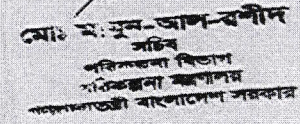 মোঃ মামুন-আল-রশীদ
সচিব
পরিকল্পনা বিভাগ
পরিকল্পনা মন্ত্রণালয়
গণপ্রজাতন্ত্রী বাংলাদেশ সরকার